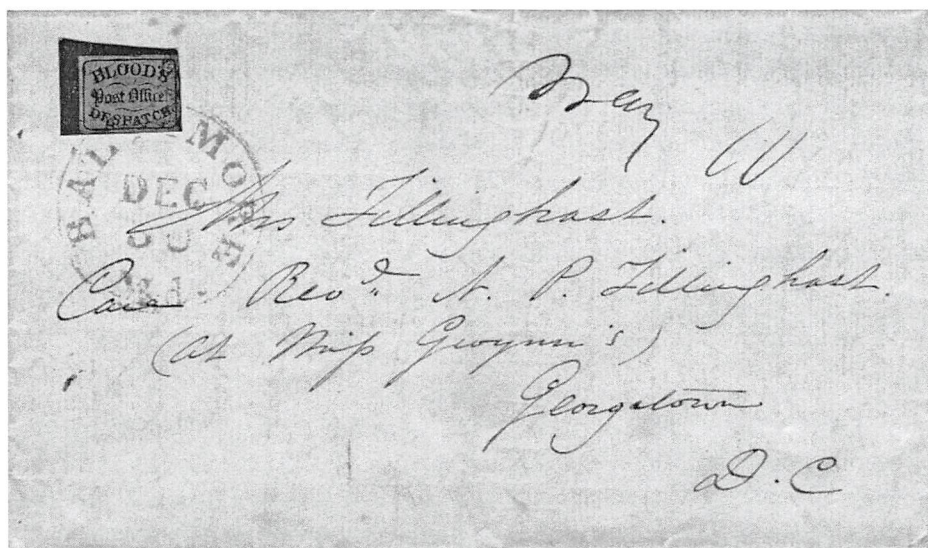 BLOOD'S
Post Office
DESPATCH
BALTIMORE
DEC
Md.
Mrs Tillinghast.
Care Revd. N. P. Tillinghast.
(at Miss Gwynn's)
Georgetown
D. C